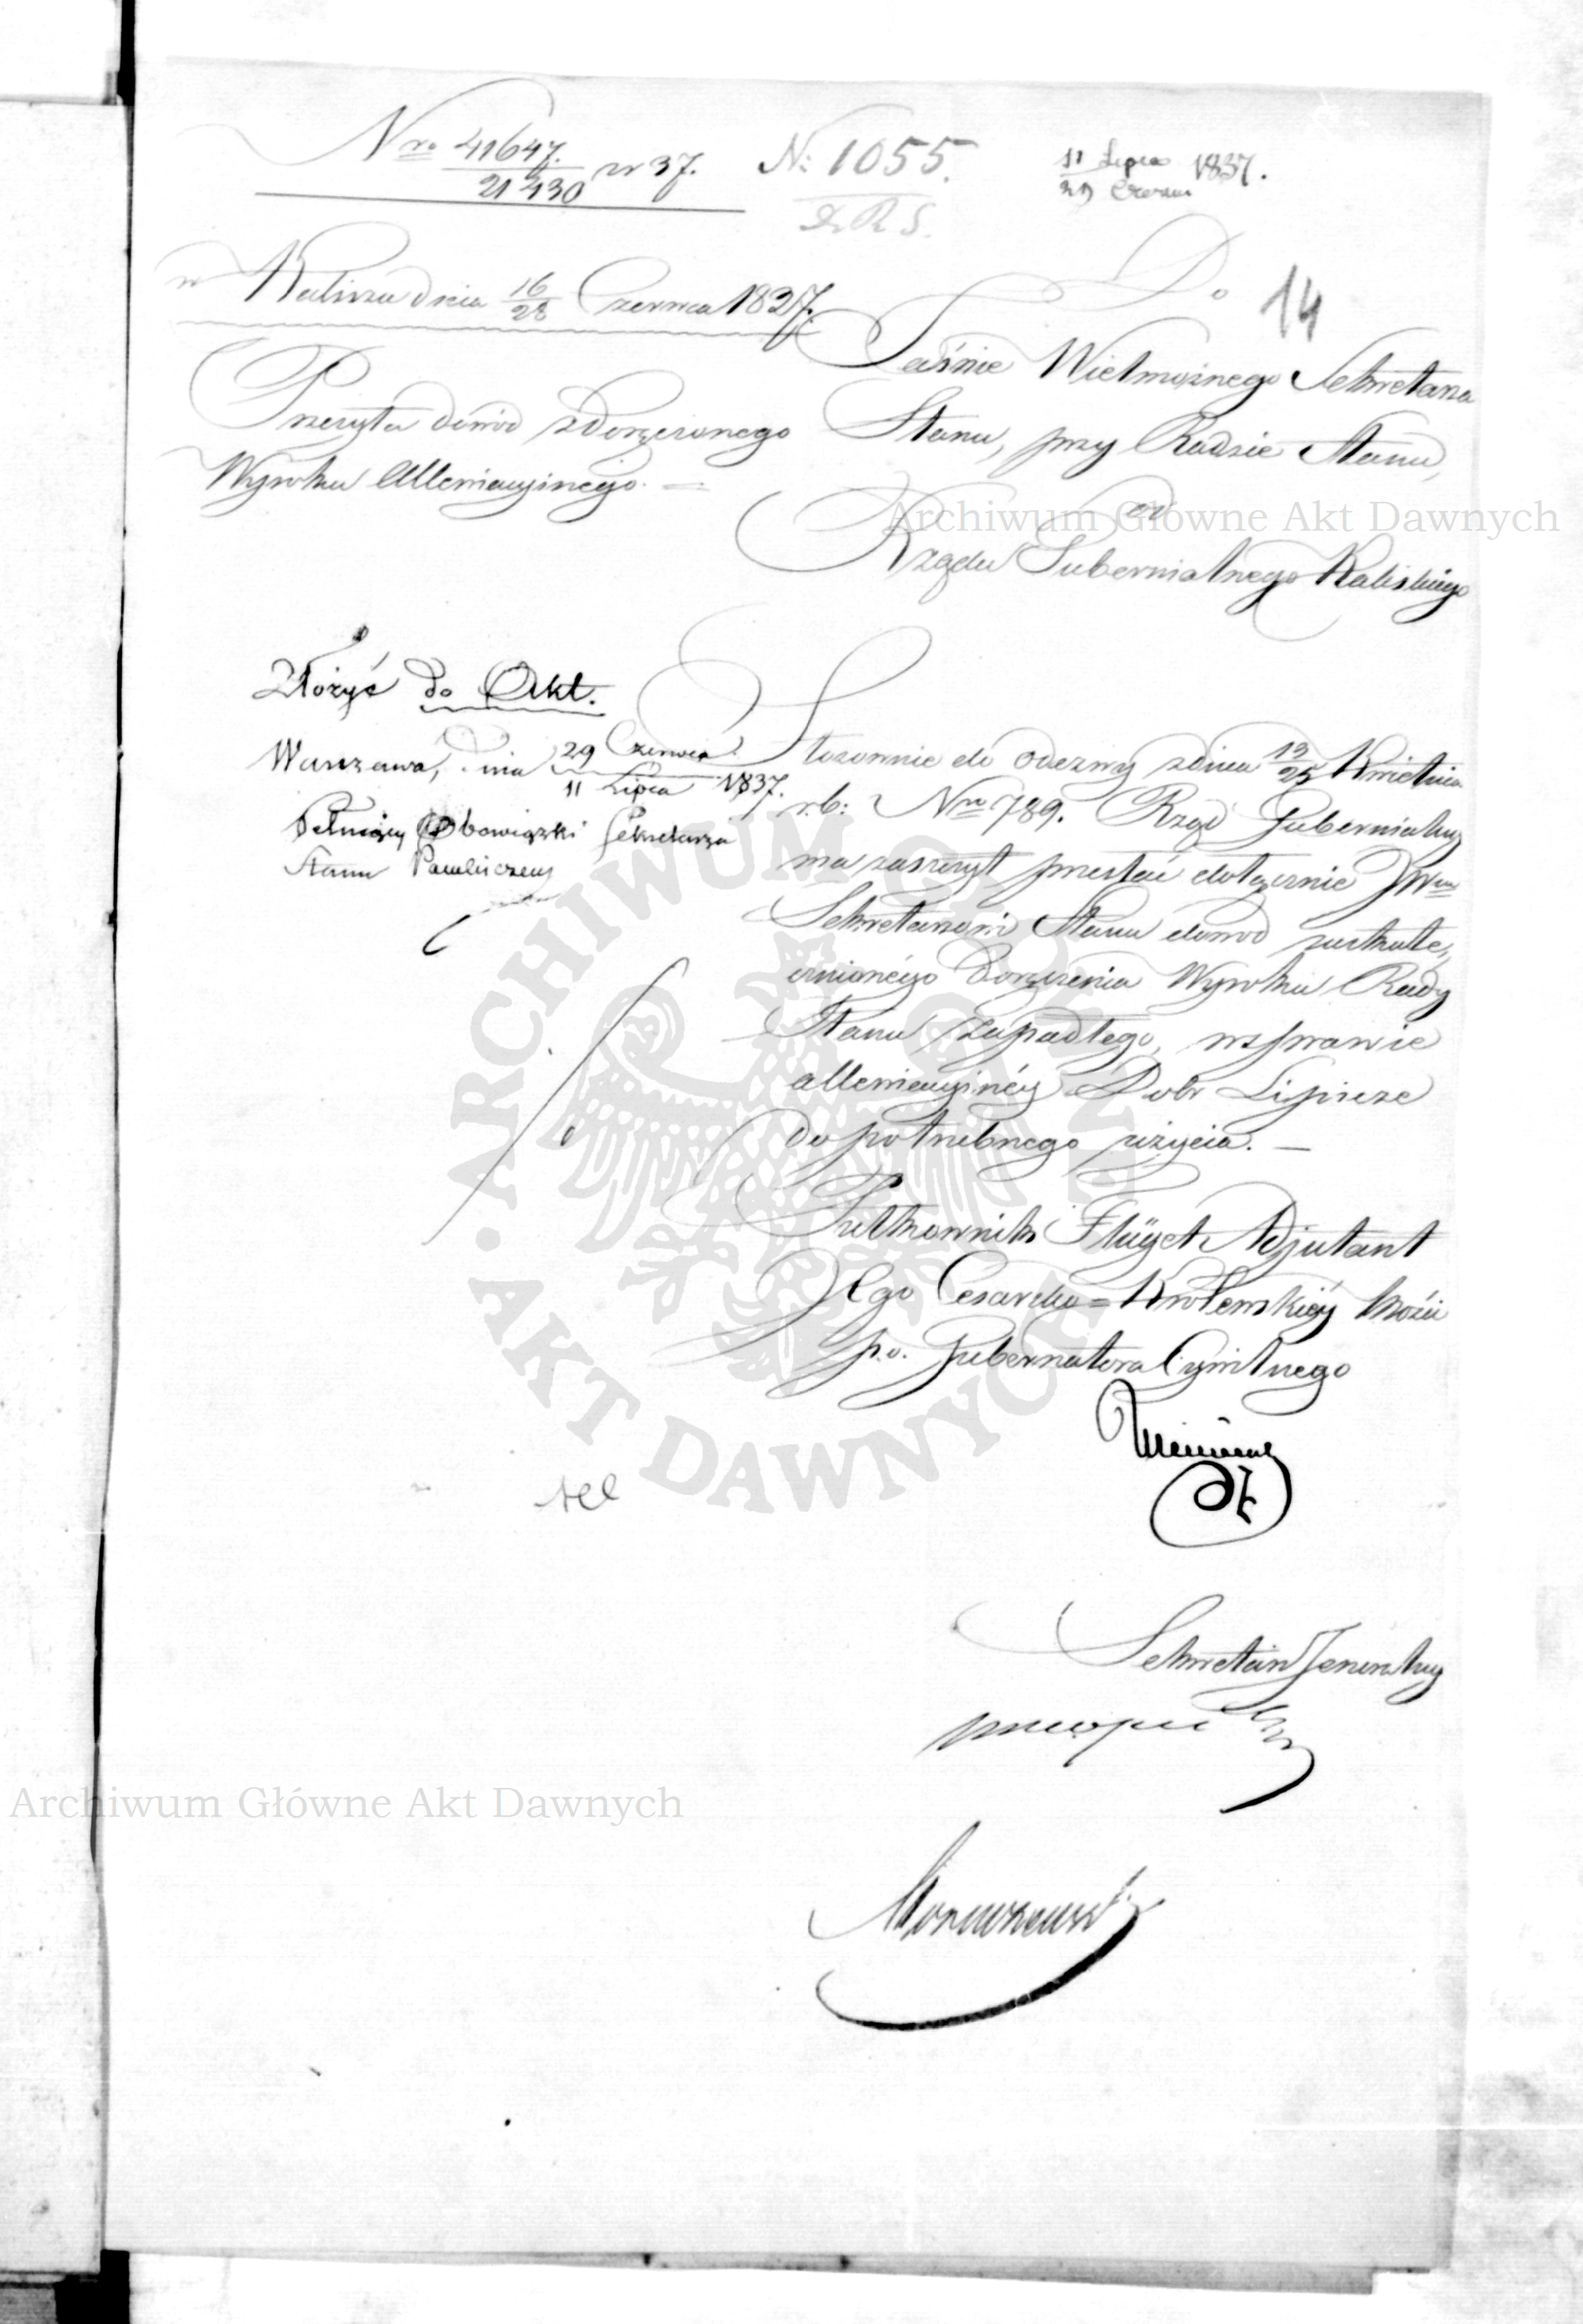 Nro 41647./21430 w 37. N: 1055.
D. R. S.
11 Lipca/29 Czerwca 1837.
w Kaliszu dnia 16/28 Czerwca 1837.
Przesyła dowód z doręczonego
Wyroku Allewiacyjnego. =
Do
14
Jaśnie Wielmożnego Sekretarza
Stanu, przy Radzie Stanu,
od
Rządu Gubernialnego Kaliskiego
Złożyć do Akt.
Warszawa, dnia 29 Czerwca/11 Lipca 1837.
Pełniący Obowiązki Sekretarza
Stanu
Stosownie do odezwy z dnia 13/25 Kwietnia
r.b: Nro 789. Rząd Gubernialny
ma zaszczyt przesłać dołącznie JWmu
Sekretarzowi Stanu dowód zuskute,
cznionégo doręczenia Wyroku Rady
Stanu zapadłego, w sprawie
allewiacyinéy Dóbr Lipicze
do potrzebnego użycia. —
Pułkownik Flügel Adjutant
Jego Cesarsko = Królewskiéy Mości
p.o. Gubernatora Cywilnego
Sekretarz Jeneralny
Archiwum Główne Akt Dawnych
Archiwum Główne Akt Dawnych
ARCHIWUM GŁÓWNE • AKT DAWNYCH